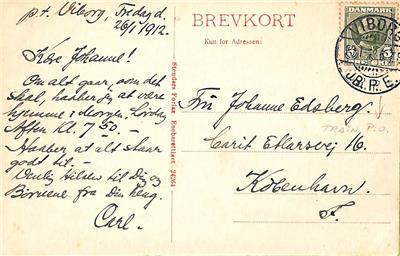 p.t. Viborg, Fredag d.
26/1 1912.
Kære Johanne!
Om alt gaar, som det
skal, haaber jeg at være
hjemme i Morgen, Lørdag
Aften Kl. 7.50. –
Haaber at alt staar
godt til. –
Venlig Hilsen til Dig og
Børnene fra Din heng.
Carl.
Stenders Forlag. Eneberettiget. 24264
BREVKORT
Kun for Adressen:
DANMARK
VIBORG
JB.P.E.
Fru Johanne Edsberg
TRAIN P.O.
Carit Etlarsvej 16.
København.
F.